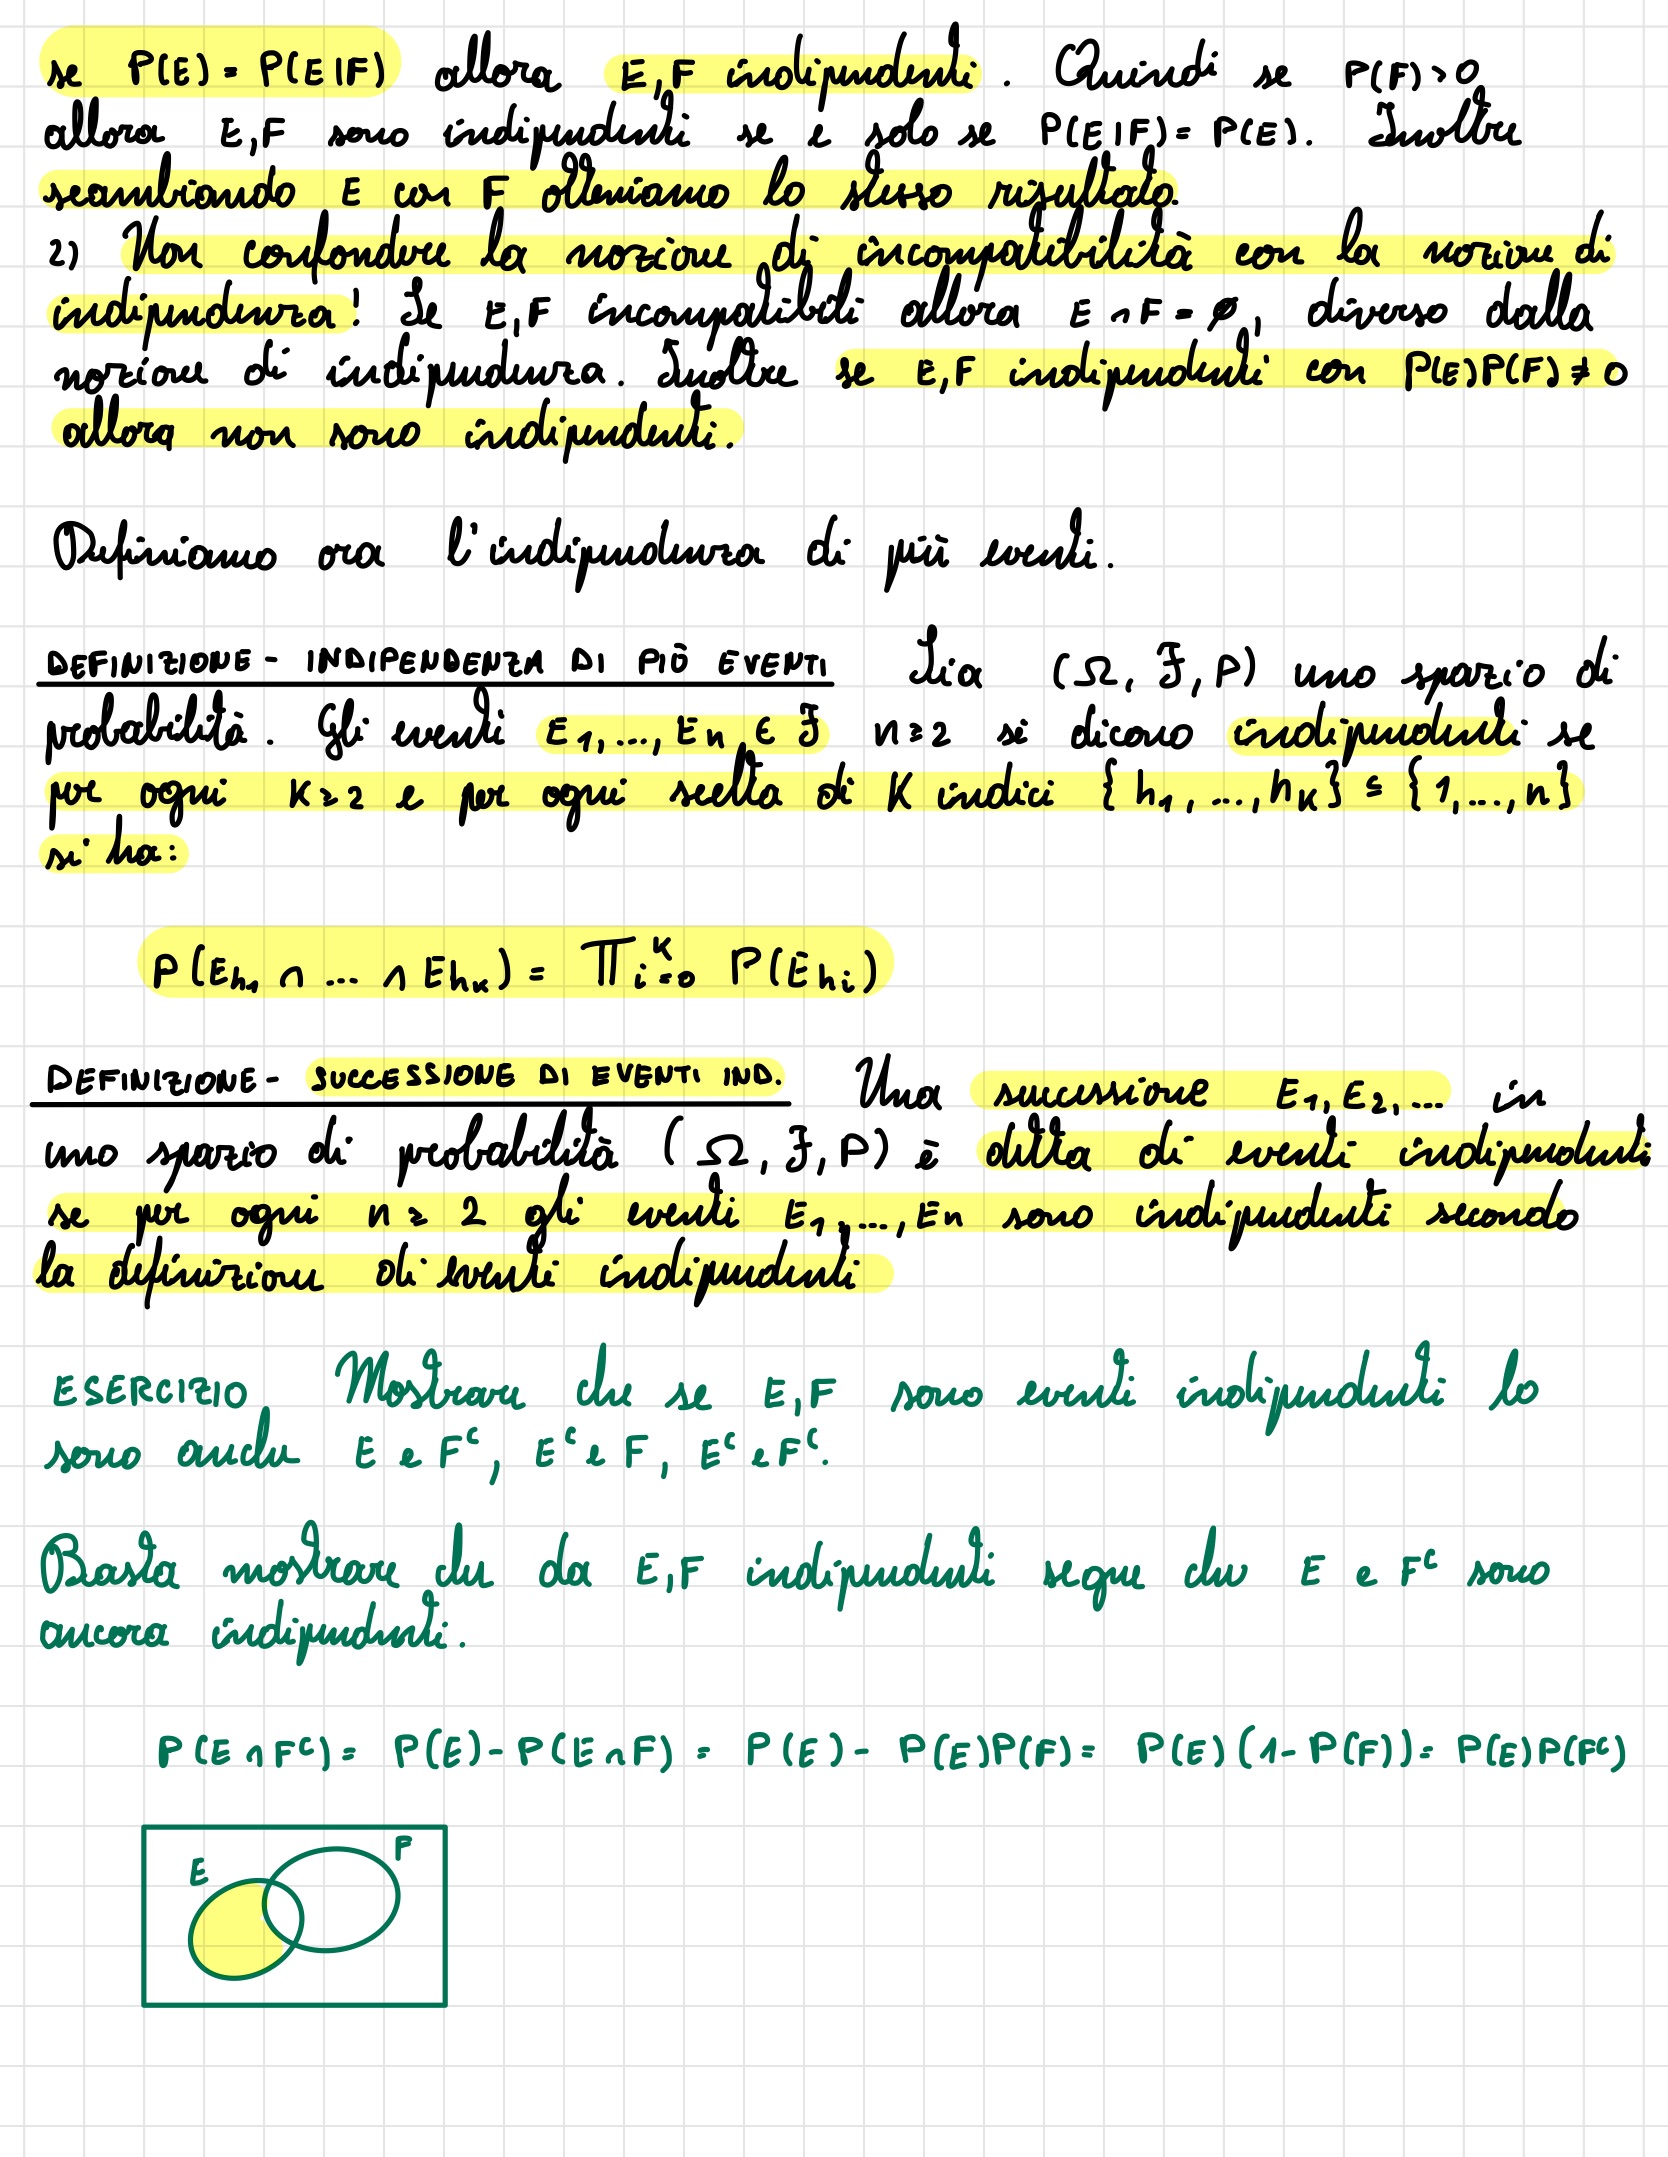 se P(E) = P(E|F) allora E,F indipendenti. Quindi se P(F)>0
allora E,F sono indipendenti se e solo se P(E|F) = P(E). Inoltre
scambiando E con F otteniamo lo stesso risultato.
2) Non confondere la nozione di incompatibilità con la nozione di
indipendenza! Se E,F incompatibili allora E∩F = ∅, diverso dalla
nozione di indipendenza. Inoltre se E,F indipendenti con P(E)P(F)≠0
allora non sono indipendenti.
Definiamo ora l'indipendenza di più eventi.
DEFINIZIONE - INDIPENDENZA DI PIÙ EVENTI Sia (Ω, ℱ, P) uno spazio di
probabilità. Gli eventi E₁,...,Eₙ ∈ ℱ n≥2 si dicono indipendenti se
per ogni K≥2 e per ogni scelta di K indici {h₁,...,hₖ} ⊆ {1,...,n}
si ha:
P(Eₕ₁ ∩ ... ∩ Eₕₖ) = ∏ᵢ₌₀ᴷ P(Eₕᵢ)
DEFINIZIONE - SUCCESSIONE DI EVENTI IND. Una successione E₁,E₂,... in
uno spazio di probabilità (Ω, ℱ, P) è detta di eventi indipendenti
se per ogni n≥2 gli eventi E₁,...,Eₙ sono indipendenti secondo
la definizione di eventi indipendenti
ESERCIZIO Mostrare che se E,F sono eventi indipendenti lo
sono anche E e Fᶜ, Eᶜ e F, Eᶜ e Fᶜ.
Basta mostrare che da E,F indipendenti segue che E e Fᶜ sono
ancora indipendenti.
P(E∩Fᶜ) = P(E) - P(E∩F) = P(E) - P(E)P(F) = P(E)(1-P(F)) = P(E)P(Fᶜ)
F
E